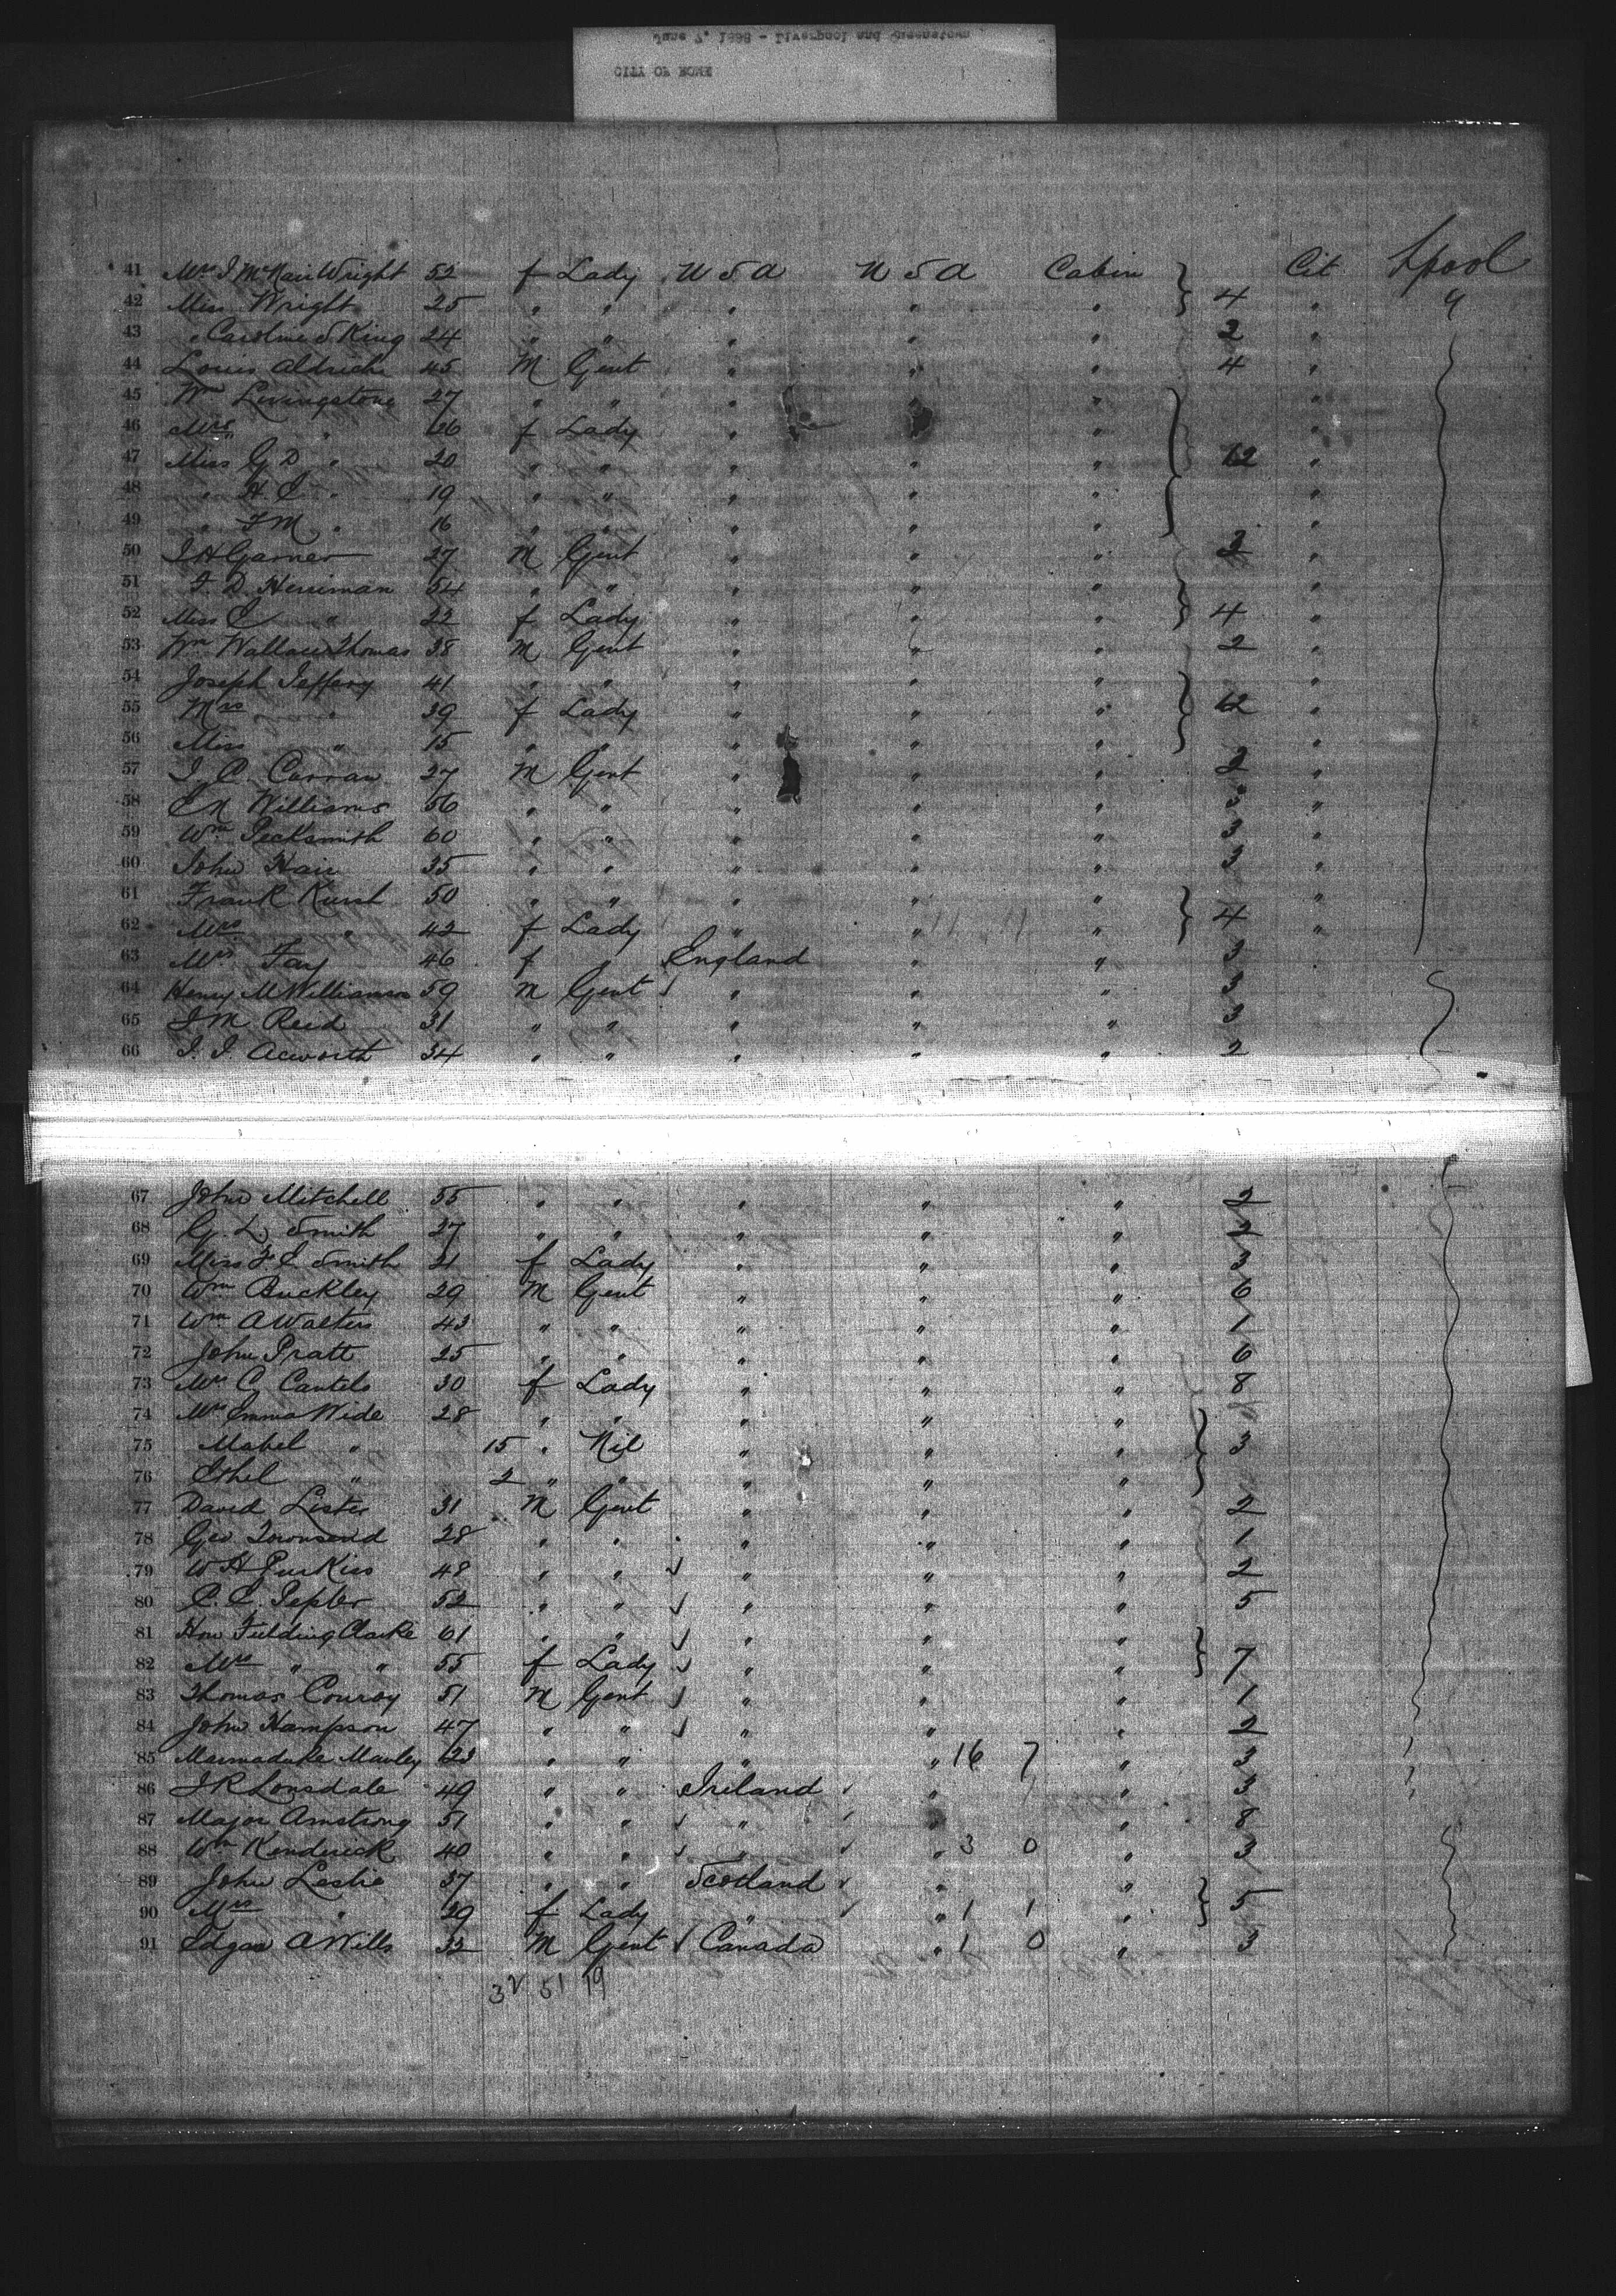 June 7, 1888 - Liverpool and Queenstown
CITY OF ROME
Lpool
41 Mrs J McNair Wright 52 f Lady U S A U S A Cabin Cit
42 Miss Wright 25 " " " " " } 4 " 9
43 " Caroline S King 24 " " " " " 2 "
44 Louis Aldrich 45 M Gent " " " 4 "
45 Wm Livingstone 27 " " " " " "
46 Mrs " 26 f Lady " " " "
47 Miss G D " 20 " " " " " } 12 "
48 " H E " 19 " " " " " "
49 " F M " 16 " " " " " "
50 J H Garner 27 M Gent " " " 3 "
51 F. D. Herriman 54 " " " " " "
52 Miss E " 22 f Lady " " " } 4 "
53 Wm Wallace Thomas 38 M Gent " " " 2 "
54 Joseph Jeffery 41 " " " " " "
55 Mrs " 39 f Lady " " " } 12 "
56 Miss " 15 " " " " " "
57 J. A. Curran 27 M Gent " " " 2 "
58 E N Williams 56 " " " " " 3 "
59 Wm Pecksmith 60 " " " " " 3 "
60 John Hair 35 " " " " " 3 "
61 Frank Kurst 50 " " " " " "
62 Mrs " 42 f Lady " " " } 4 "
63 Mrs Fay 46 f " England " " 3
64 Henry M Williamson 59 M Gent " " " 3
65 J M Reid 31 " " " " " 3
66 J. J. Acworth 34 " " " " " 2
67 John Mitchell 55 " " " " " 2
68 G. L. Smith 27 " " " " "
69 Miss F. E Smith 21 f Lady " " " 3
70 Wm Buckley 29 M Gent " " " 6
71 Wm A Walters 43 " " " " " 1
72 John Pratt 25 " " " " " 6
73 Mrs C Cantelo 30 f Lady " " " 8
74 Mrs Emma Wide 28 " " " " "
75 Mabel " 15 " Nil " " " } 3
76 Ethel " 2 " " " " "
77 David Lister 31 M Gent " " " 2
78 Geo Townsend 28 " " " " " 1
79 W H Purkiss 48 " " " " " 2
80 P. E. Pepler 52 " " " " " 5
81 Hon Fielding Clarke 61 " " " " "
82 Mrs " " 55 f Lady " " " } 7
83 Thomas Conroy 51 M Gent " " " 1
84 John Hampson 47 " " " " " 2
85 Marmaduke Manley 23 " " " " 16 7 " 3
86 J R Lonsdale 49 " " Ireland " " 3
87 Major Amstrong 51 " " " " " 8
88 Wm Kendrick 40 " " " " 3 0 " 3
89 John Leslie 37 " " Scotland " "
90 Mrs " 29 f Lady " " 1 1 " } 5
91 Edgar A Wills 32 M Gent Canada " 1 0 " 3
32 51 19